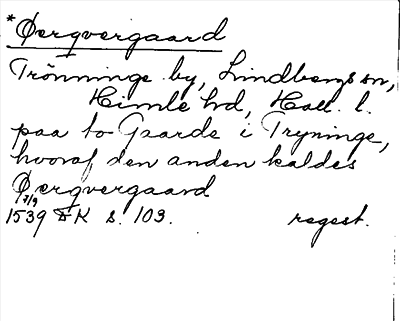 *Øerqvergaard
Trönninge by, Lindbergs sn,
Himle hd, Hall. l.
paa to Gaarde i Tryninge,
hvoraf den anden kaldes
Øerqvergaard
7/9
1539 DK s. 103. regest.